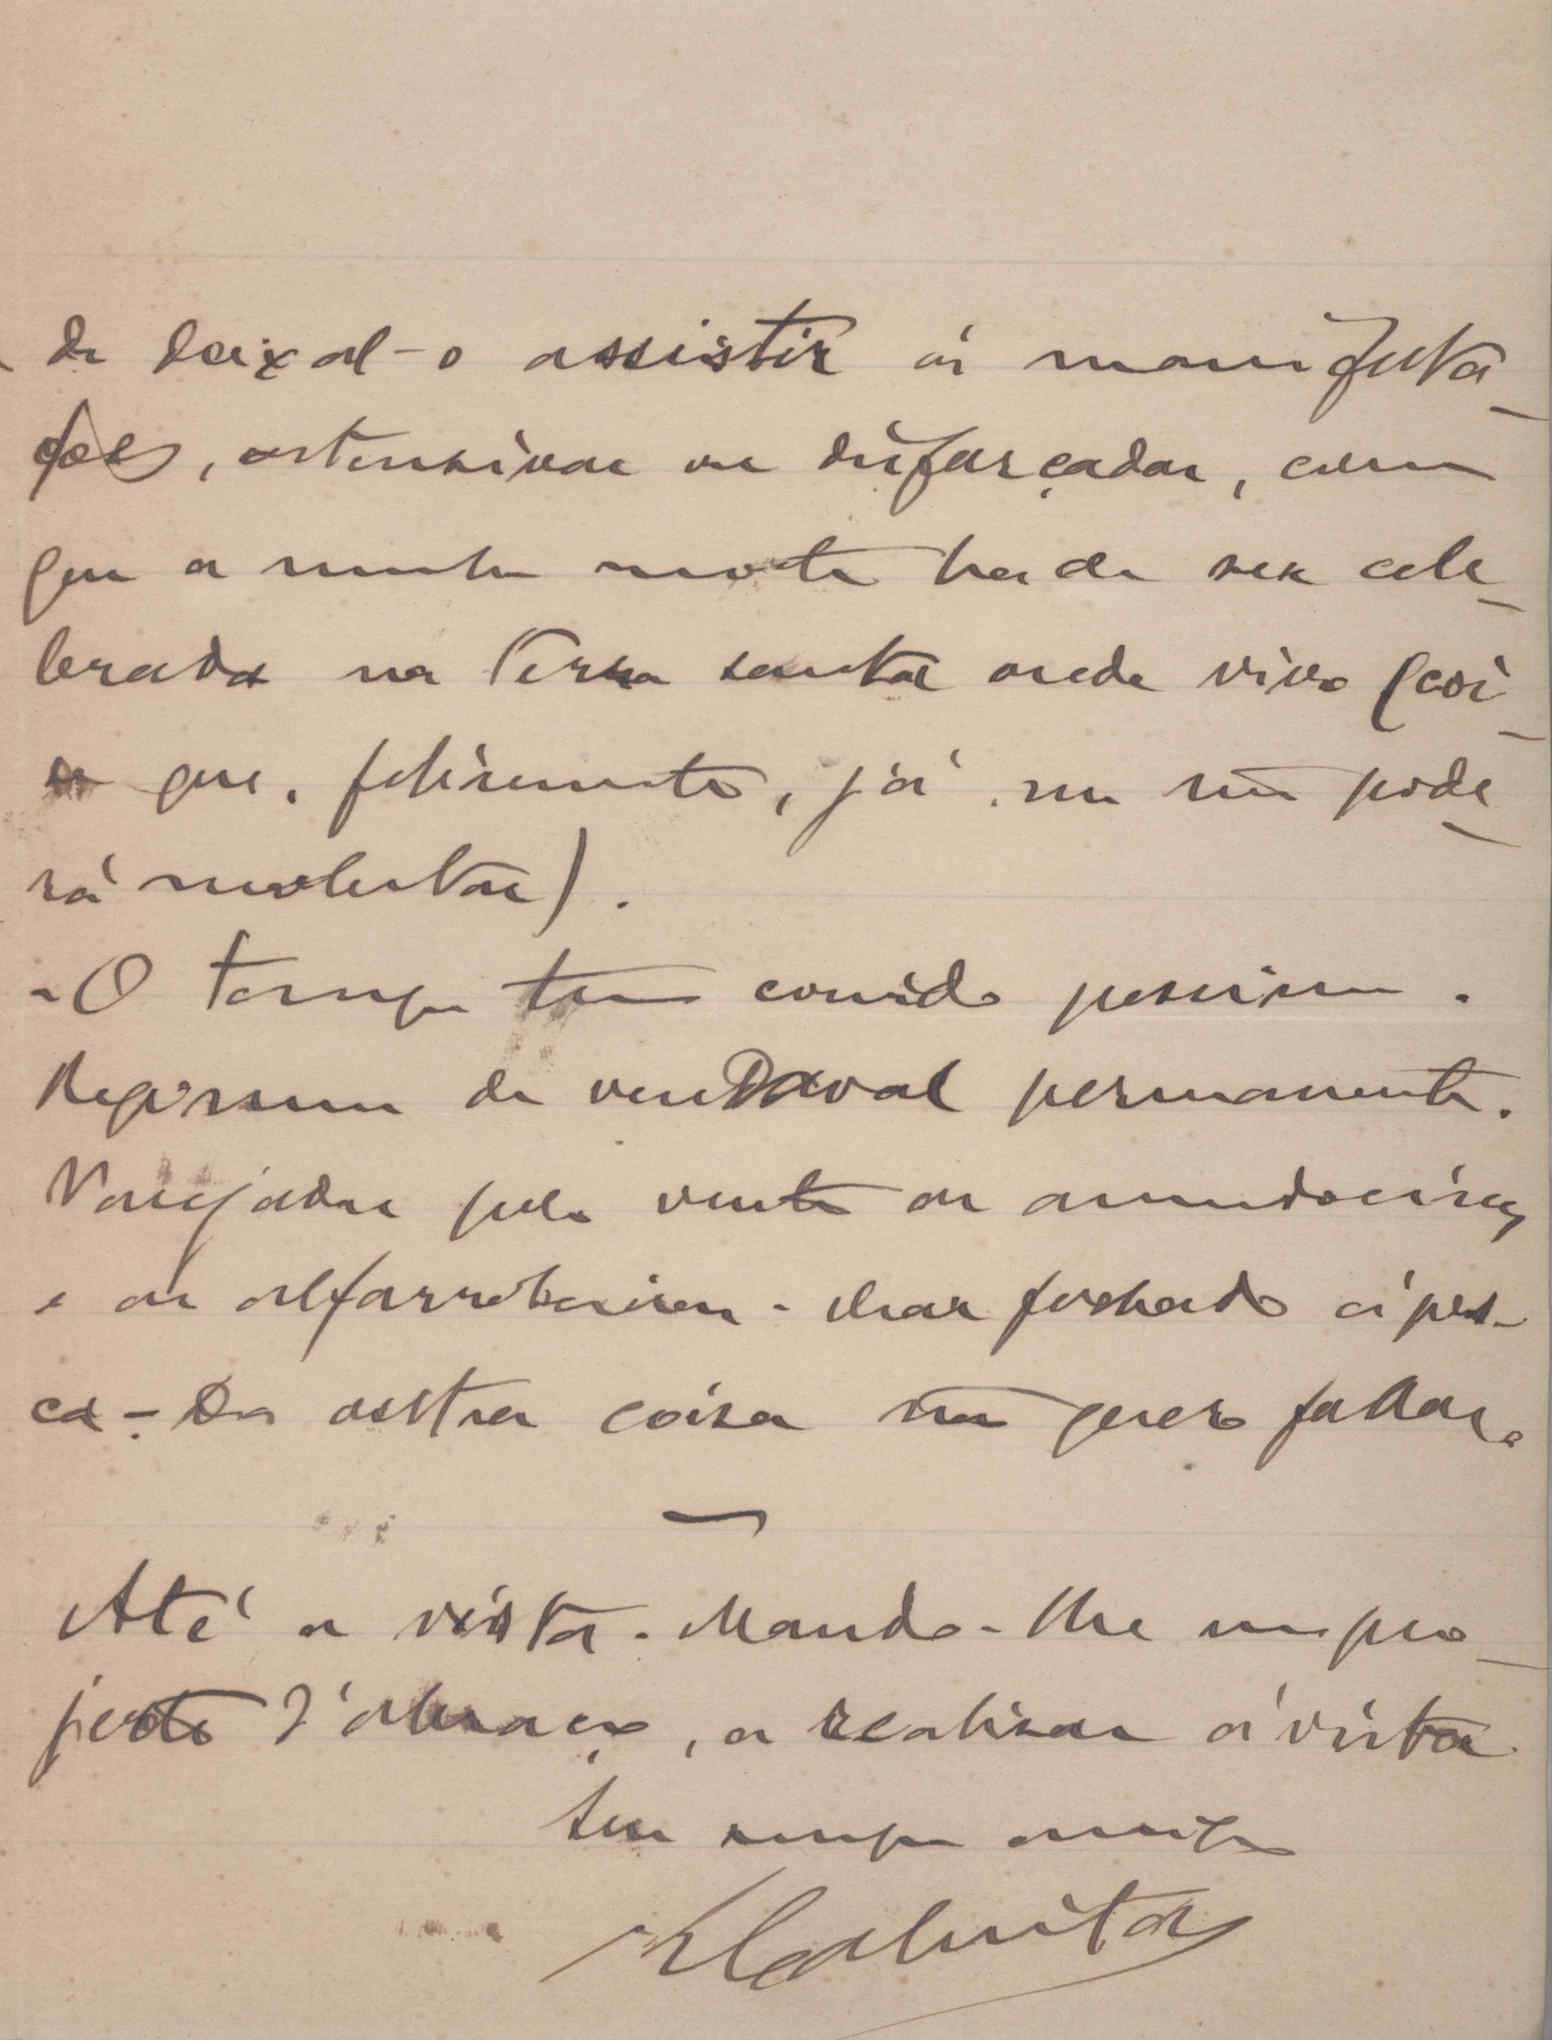 de deixal-o assistir ás manifesta-
ções, ostensivas ou disfarçadas, com
que a minha morte ha de ser cele-
brada na Terra santa onde vivo (coi-
sa que, felizmente, já me não pode-
rá molestar).
- O tempo tem corrido pessimo.
Regimen de vendaval permanente.
Varejadas pelo vento as amendoeiras
e as alfarrobeiras - Mar fechado á pes-
ca - De outra coisa não quero fallar.
Até á vista. Mando-lhe um pro-
jecto d'abraço, a realisar á vista
Seu sempre amigo